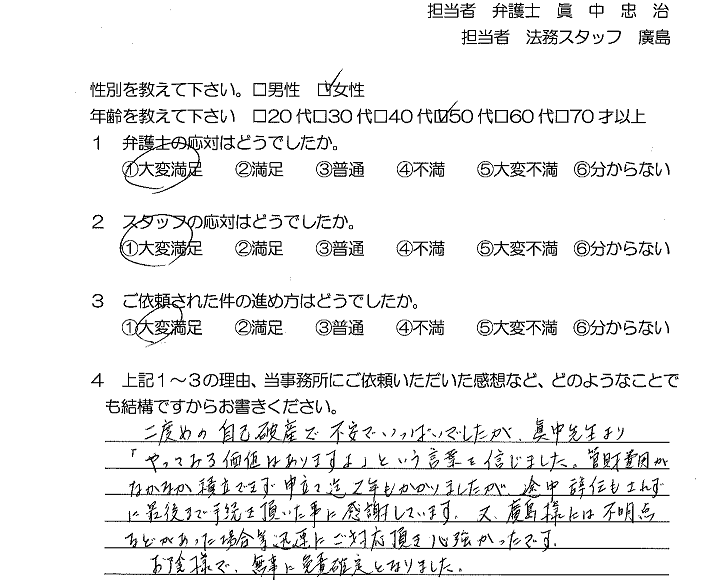 担当者 弁護士 眞 中 忠 治
担当者 法務スタッフ 廣島
性別を教えて下さい。□男性 ☑女性
年齢を教えて下さい □20代□30代□40代☑50代□60代□70才以上
1 弁護士の応対はどうでしたか。
①大変満足 ②満足 ③普通 ④不満 ⑤大変不満 ⑥分からない
2 スタッフの応対はどうでしたか。
①大変満足 ②満足 ③普通 ④不満 ⑤大変不満 ⑥分からない
3 ご依頼された件の進め方はどうでしたか。
①大変満足 ②満足 ③普通 ④不満 ⑤大変不満 ⑥分からない
4 上記1～3の理由、当事務所にご依頼いただいた感想など、どのようなことで
も結構ですからお書きください。
二度めの自己破産で不安でいっぱいでしたが、眞中先生より
「やってみる価値はありますよ」という言葉を信じました。管財費用が
なかなか積立できず申立て迄2年もかかりましたが途中辞任もされず
に最後まで手続き頂いた事に感謝しています。又、廣島様には不明点
などがあった場合等迅速にご対応頂き心強かったです。
お陰様で、無事に免責確定となりました。